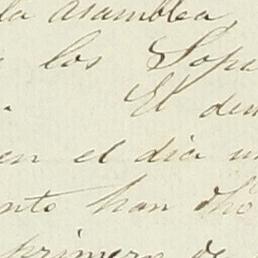 la asamblea,
los Sope
El den
en el dia un
nto han dho
primera de